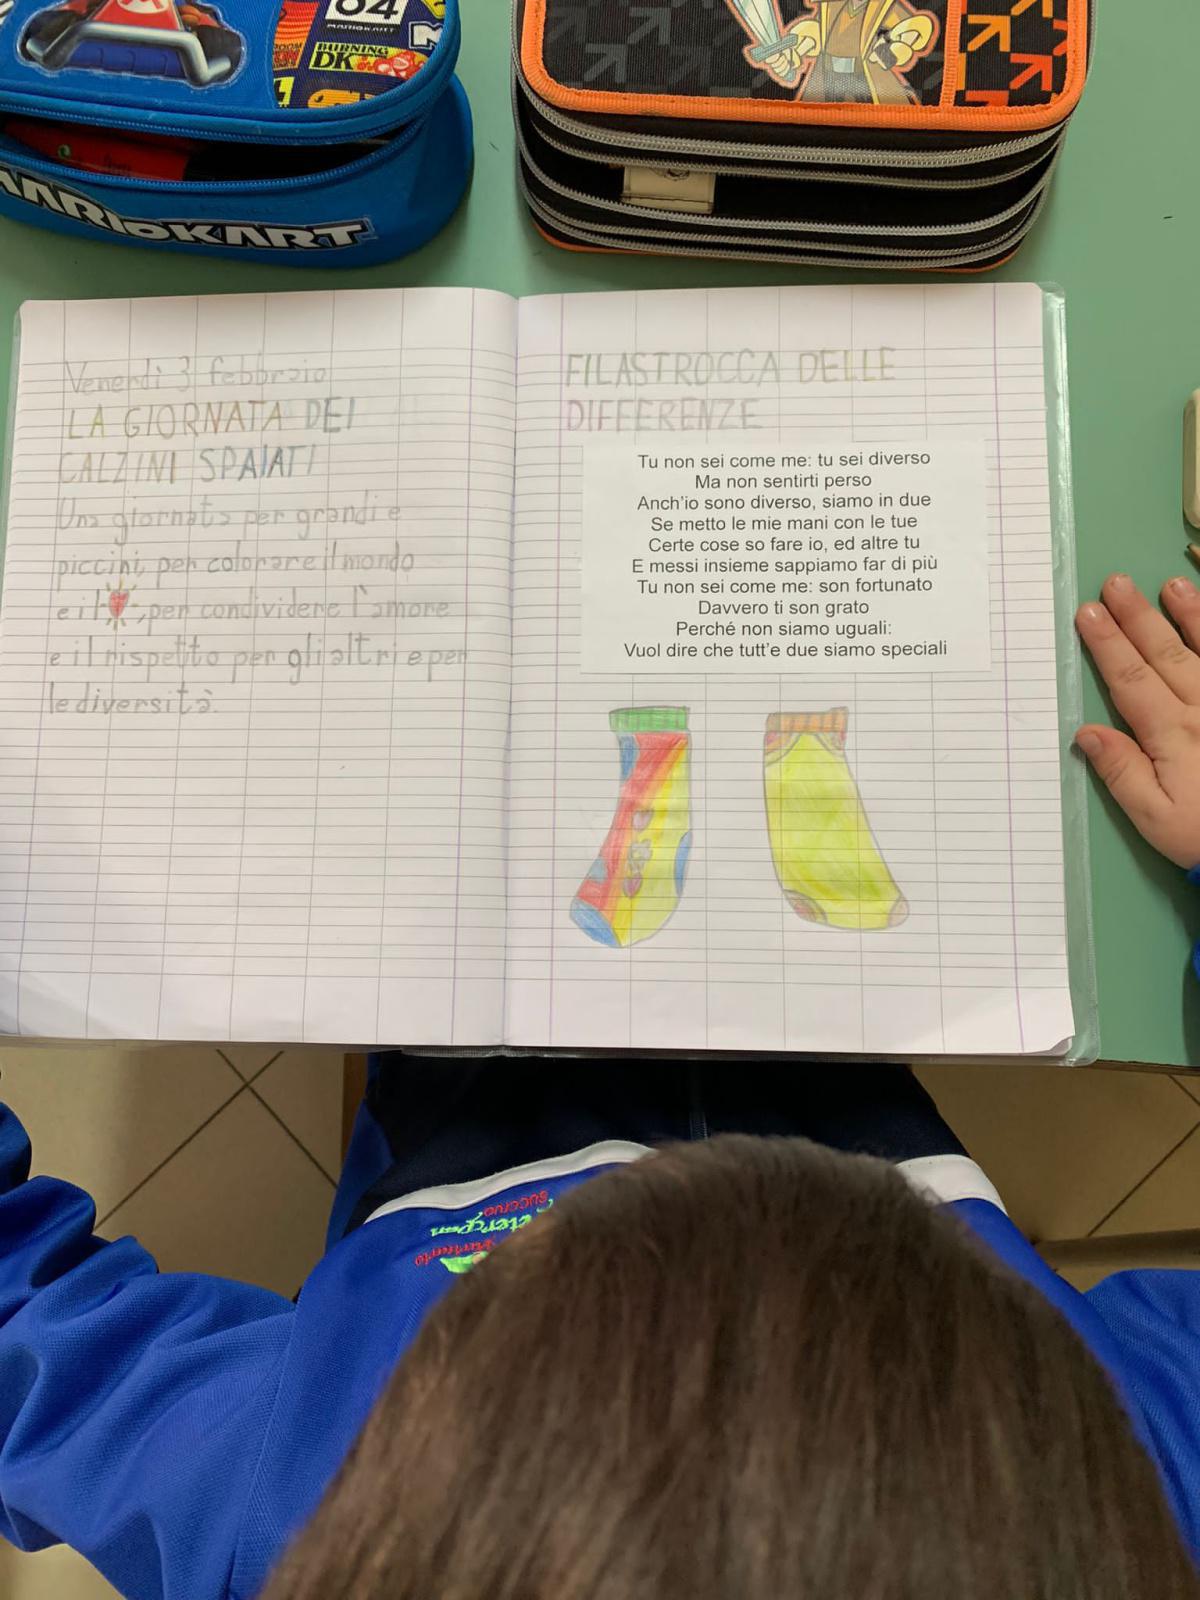 64
MARIOKART
BURNING
DK
MARIOKART
Venerdì 3 febbraio
LA GIORNATA DEI
CALZINI SPAIATI
Una giornata per grandi e
piccini, per colorare il mondo
e il ,per condividere l'amore
e il rispetto per gli altri e per
le diversità.
FILASTROCCA DELLE
DIFFERENZE
Tu non sei come me: tu sei diverso
Ma non sentirti perso
Anch'io sono diverso, siamo in due
Se metto le mie mani con le tue
Certe cose so fare io, ed altre tu
E messi insieme sappiamo far di più
Tu non sei come me: son fortunato
Davvero ti son grato
Perché non siamo uguali:
Vuol dire che tutt'e due siamo speciali
SUCCIVO